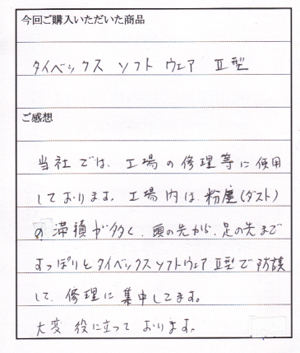 今回ご購入いただいた商品
タイベックス ソフトウェア Ⅲ型
ご感想
当社では、工場の修理等に使用
しております。工場内は、粉塵(ダスト)
の滞積が多く、頭の先から、足の先まで
すっぽりとタイベックスソフトウェアⅢ型で防護
して、修理に集中してます。
大変役に立っております。